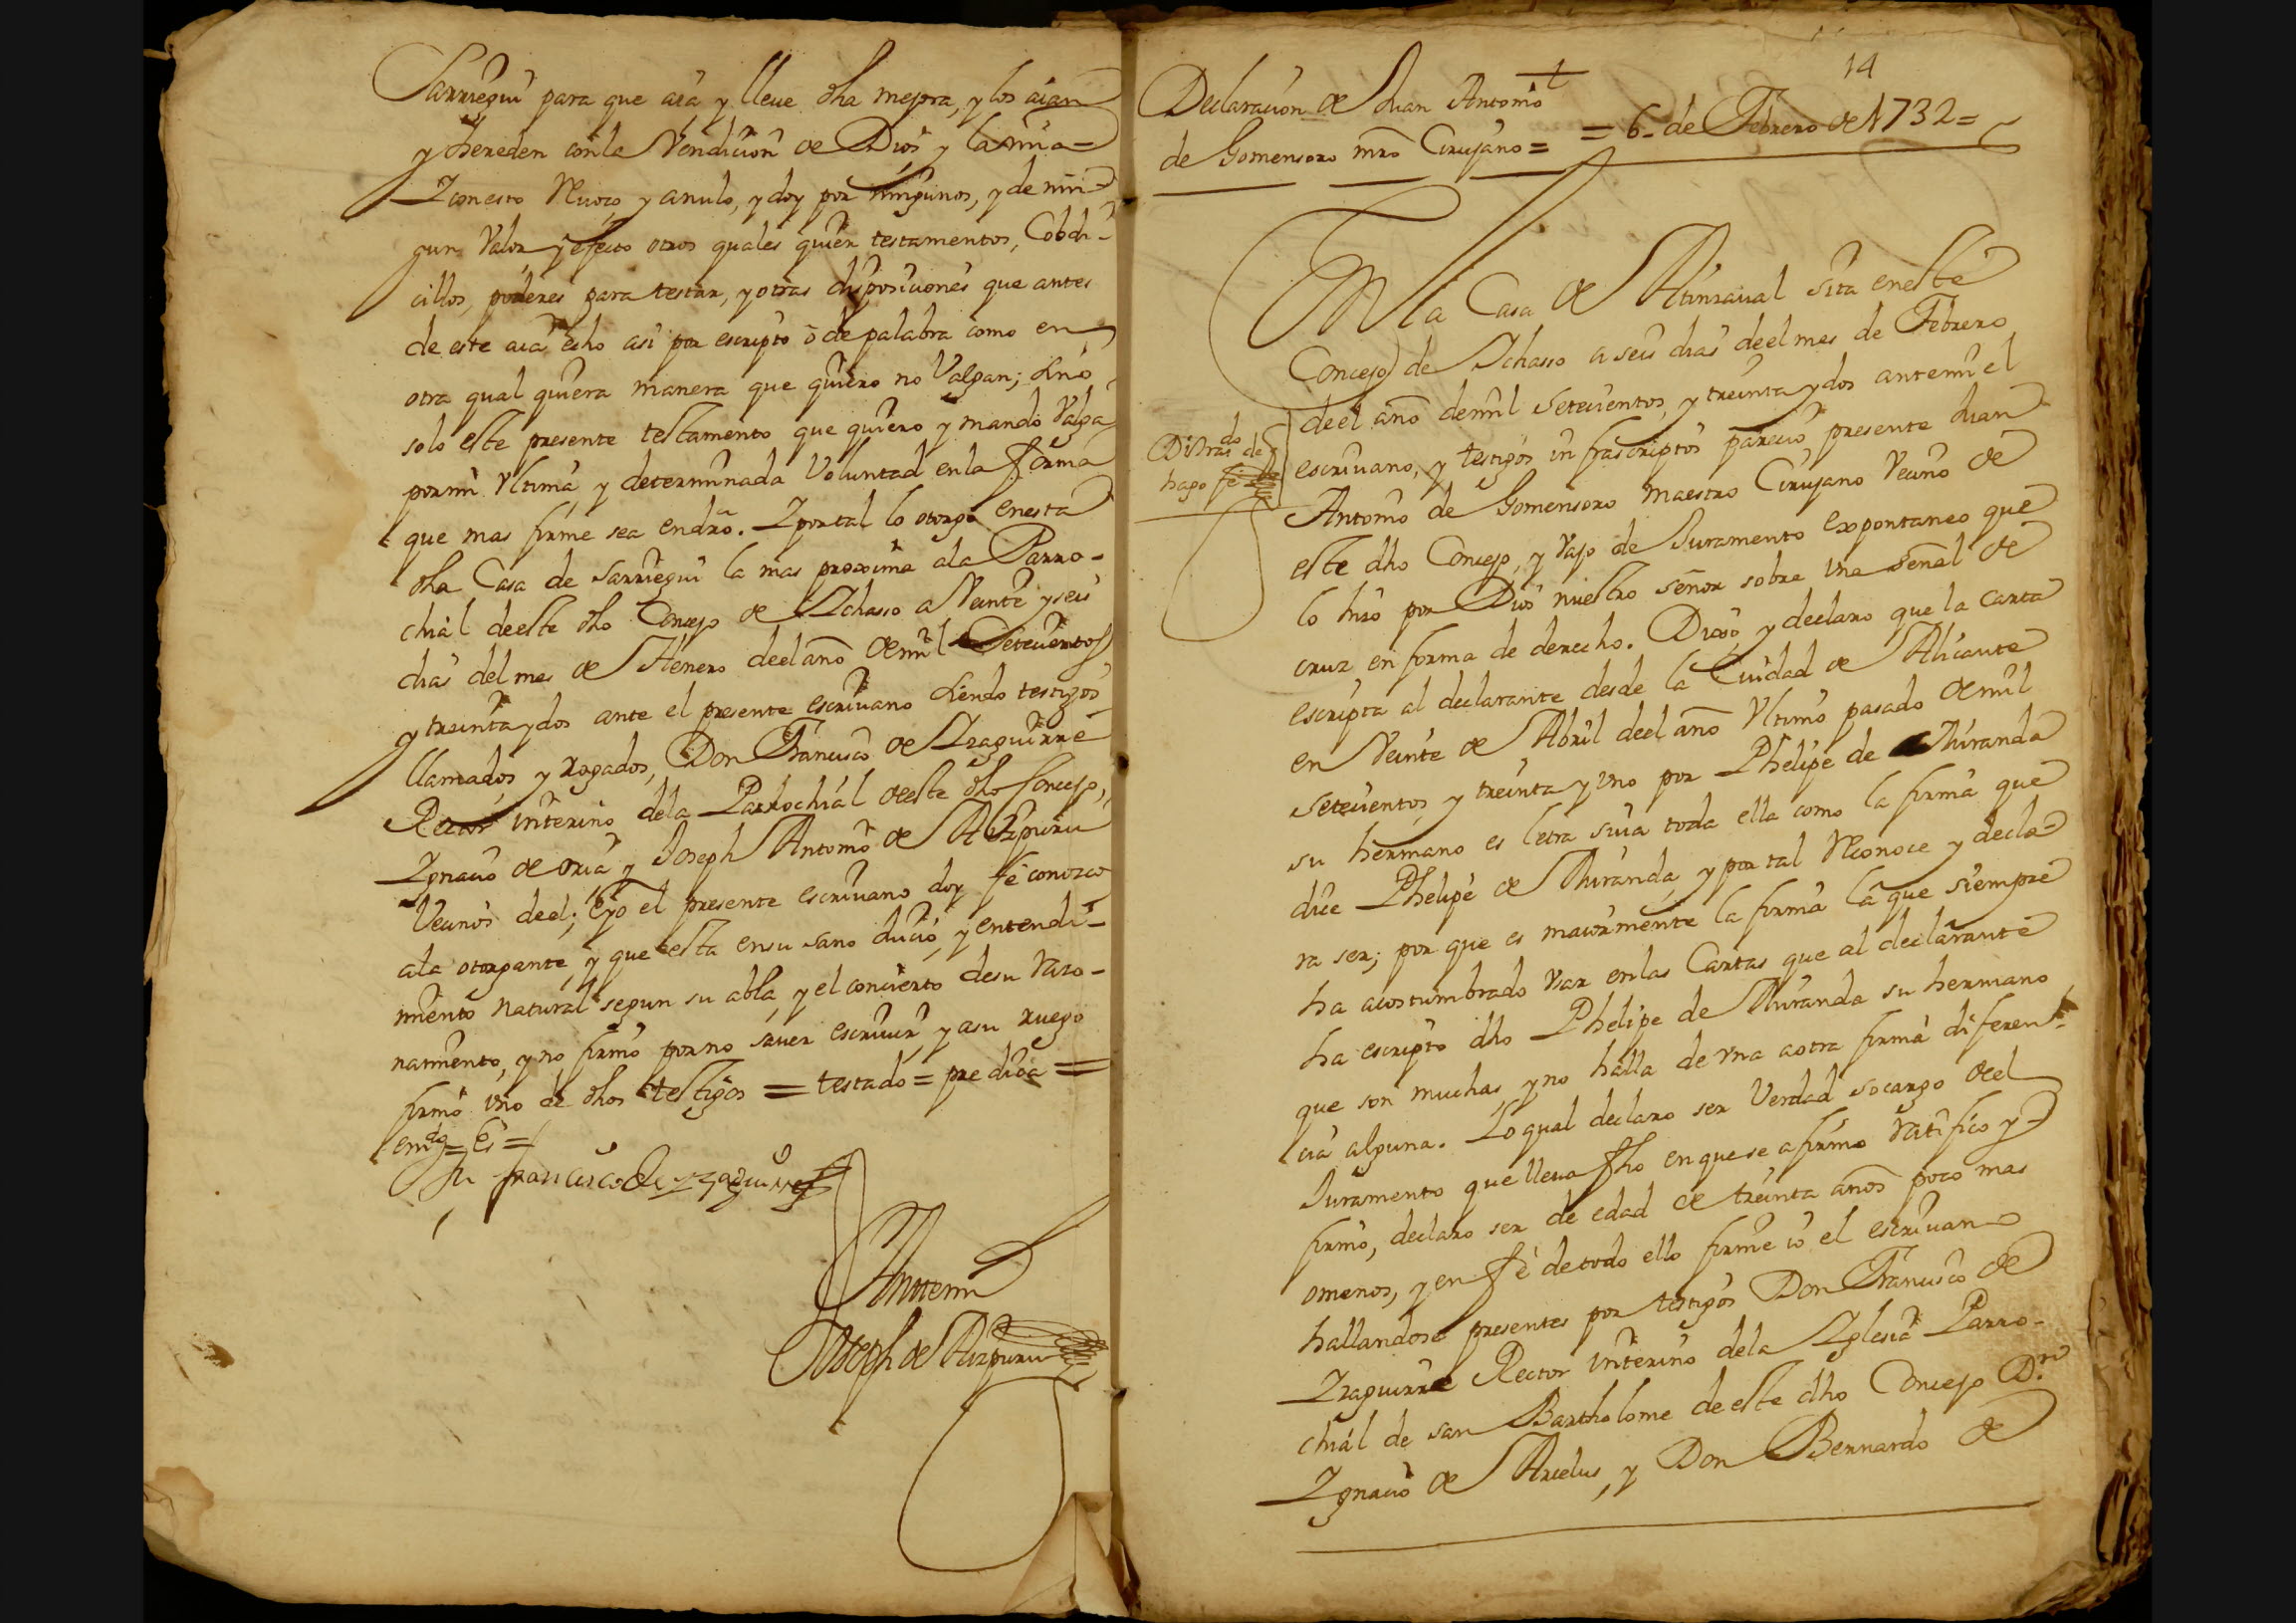 Sarriegui para que aia, y lleve dha mejora, y los aian
y hereden con la Vendicion de Dios y la mia =
Y con esto Revoco, y anulo, y doy por ningunos, y de nin-
gun Valor, y efecto otros quales quier testamentos, Cobdi-
cillos, poderes para testar, y otras disposiciones que antes
de este aia echo asi por escripto ō de palabra como en
otra qual quiera manera que quiero no Valgan; sino
solo este presente testamento que quiero y mando Valga
por mi Ultima y determinada Voluntad en la forma
que mas firme sea en dro. Y por tal lo otorgo en esta
dha Casa de Sarriegui la mas proxima a la Parro-
chial de este dho Concejo de Ychasso a Veinte y seis
dias del mes de Henero de el año de mil Setecientos
y treinta y dos ante el presente escrivano siendo testigos
llamados, y rogados, Don Francisco de Yraguirre
Rector interino de la Parrochial de este dho Concejo,
Ygnacio de oria y Joseph Antonio de Aizpuru
Vecinos de el; E yo el presente escrivano doy fe conozco
a la otorgante, y que esta en su sano juicio, y entendi-
miento natural segun su abla, y el concierto de su razo-
namiento, y no firmo por no saver escrivir y a su ruego
firmo uno de dhos testigos = testado = pre dica =
emdo = Es =
Francisco de Yraguirre
Antemi
Joseph de Aizpuru
14
Declaracion de Juan Antonio
de Gomensoro mro Cirujano = = 6 de Febrero de 1732 =
En la Casa de sita en este
Concejo de Ychasso a seis dias de el mes de Febrero
de el año de mil setecientos, y treinta y dos ante mi el
escrivano, y testigos infrascriptos parecio presente Juan
Antonio de Gomensoro Maestro Cirujano Vecino de
este dho Concejo, y Vajo de Juramento expontaneo que
lo hiso por Dios nuestro señor sobre una señal de
cruz en forma de derecho. Dixo, y declaro que la carta
escripta al declarante desde la Ciudad de Alicante
en Veinte de Abril de el año Ultimo pasado de mil
setecientos y treinta y uno por Phelipe de Miranda
su hermano es letra suia toda ella como la firma que
dice Phelipe de Miranda, y por tal Reconoce y decla-
ra ser; por que es maiormente la firma la que siempre
ha acostumbrado Usar en las Cartas que al declarante
ha escripto dho Phelipe de Miranda su hermano
que son muchas, y no halla de una a otra firma diferen-
cia alguna. Lo qual declaro ser Verdad so cargo de el
Juramento que lleva fho en que se afirmo ratifico y
firmo, declaro ser de edad de treinta años poco mas
o menos, y en fe de todo ello firme io el escrivano
hallandose presentes por testigos Don Francisco de
Yraguirre Rector interino de la Yglesia Parro-
chial de san Bartholome de este dho Concejo Dn
Ygnacio de Arcelus, y Don Bernardo de
hago fe